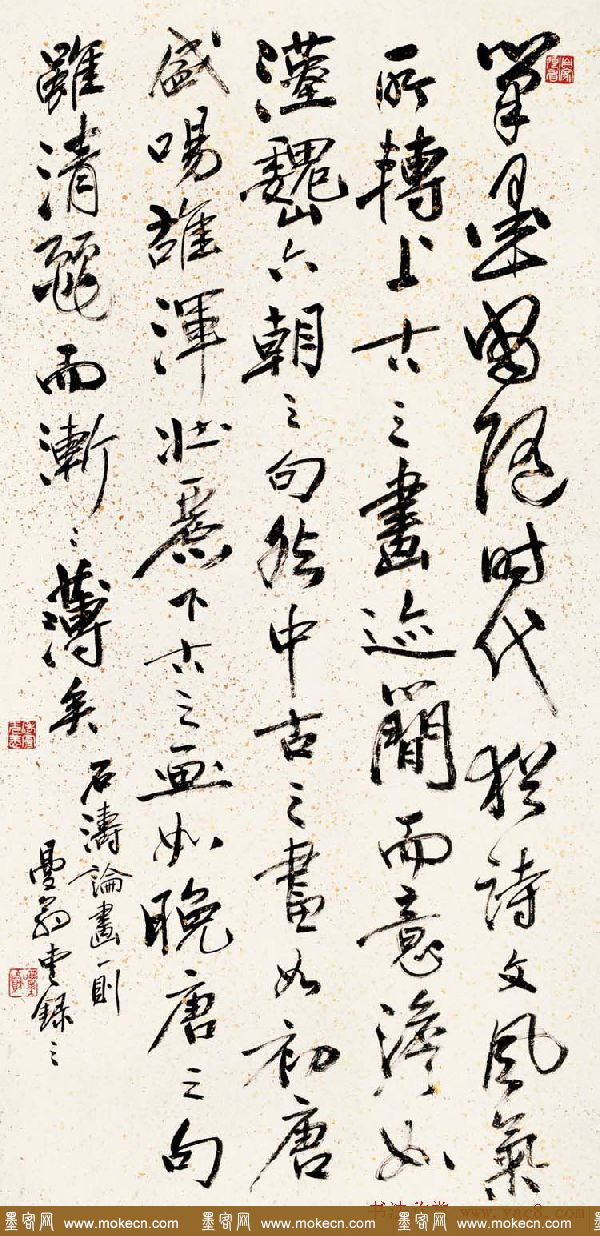 筆墨當隨时代猶詩文風氣
所轉上古之畫迹簡而意澹如
漢魏六朝之句然中古之畫如初唐
盛啺雄渾壯麗下古之画如晚唐之句
雖清麗而漸〻薄矣
石濤論畫一則
曼翁書錄之
书法欣赏 www.yac8.com
墨客网 www.mokecn.com 墨客网 www.mokecn.com 墨客网 www.mokecn.com